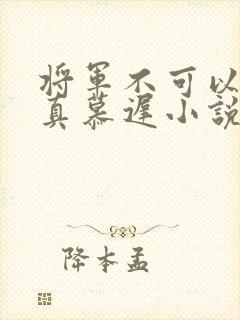 将军不可以
真慕遲小說
降本孟